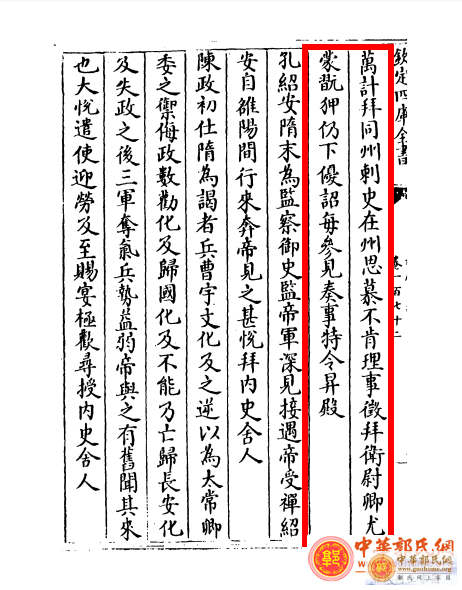 欽定四庫全書
卷一百七十二
萬計拜同州刺史在州思慕不肯理事徵拜衛尉卿尤
蒙翫狎仍下優詔每參見奏事特令昇殿
孔紹安隋末為監察御史監帝軍深見接遇帝受禪紹
安自雒陽間行來奔帝見之甚悅拜內史舍人
陳政初仕隋為謁者兵曹宇文化及之逆以為太常卿
委之禦侮政數勸化及歸國化及不能乃亡歸長安化
及失政之後三軍奪氣兵勢益弱帝與之有舊聞其來
也大悅遣使迎勞及至賜宴極歡尋授內史舍人
中華郭氏網
中華郭氏網
www.guoshome.org